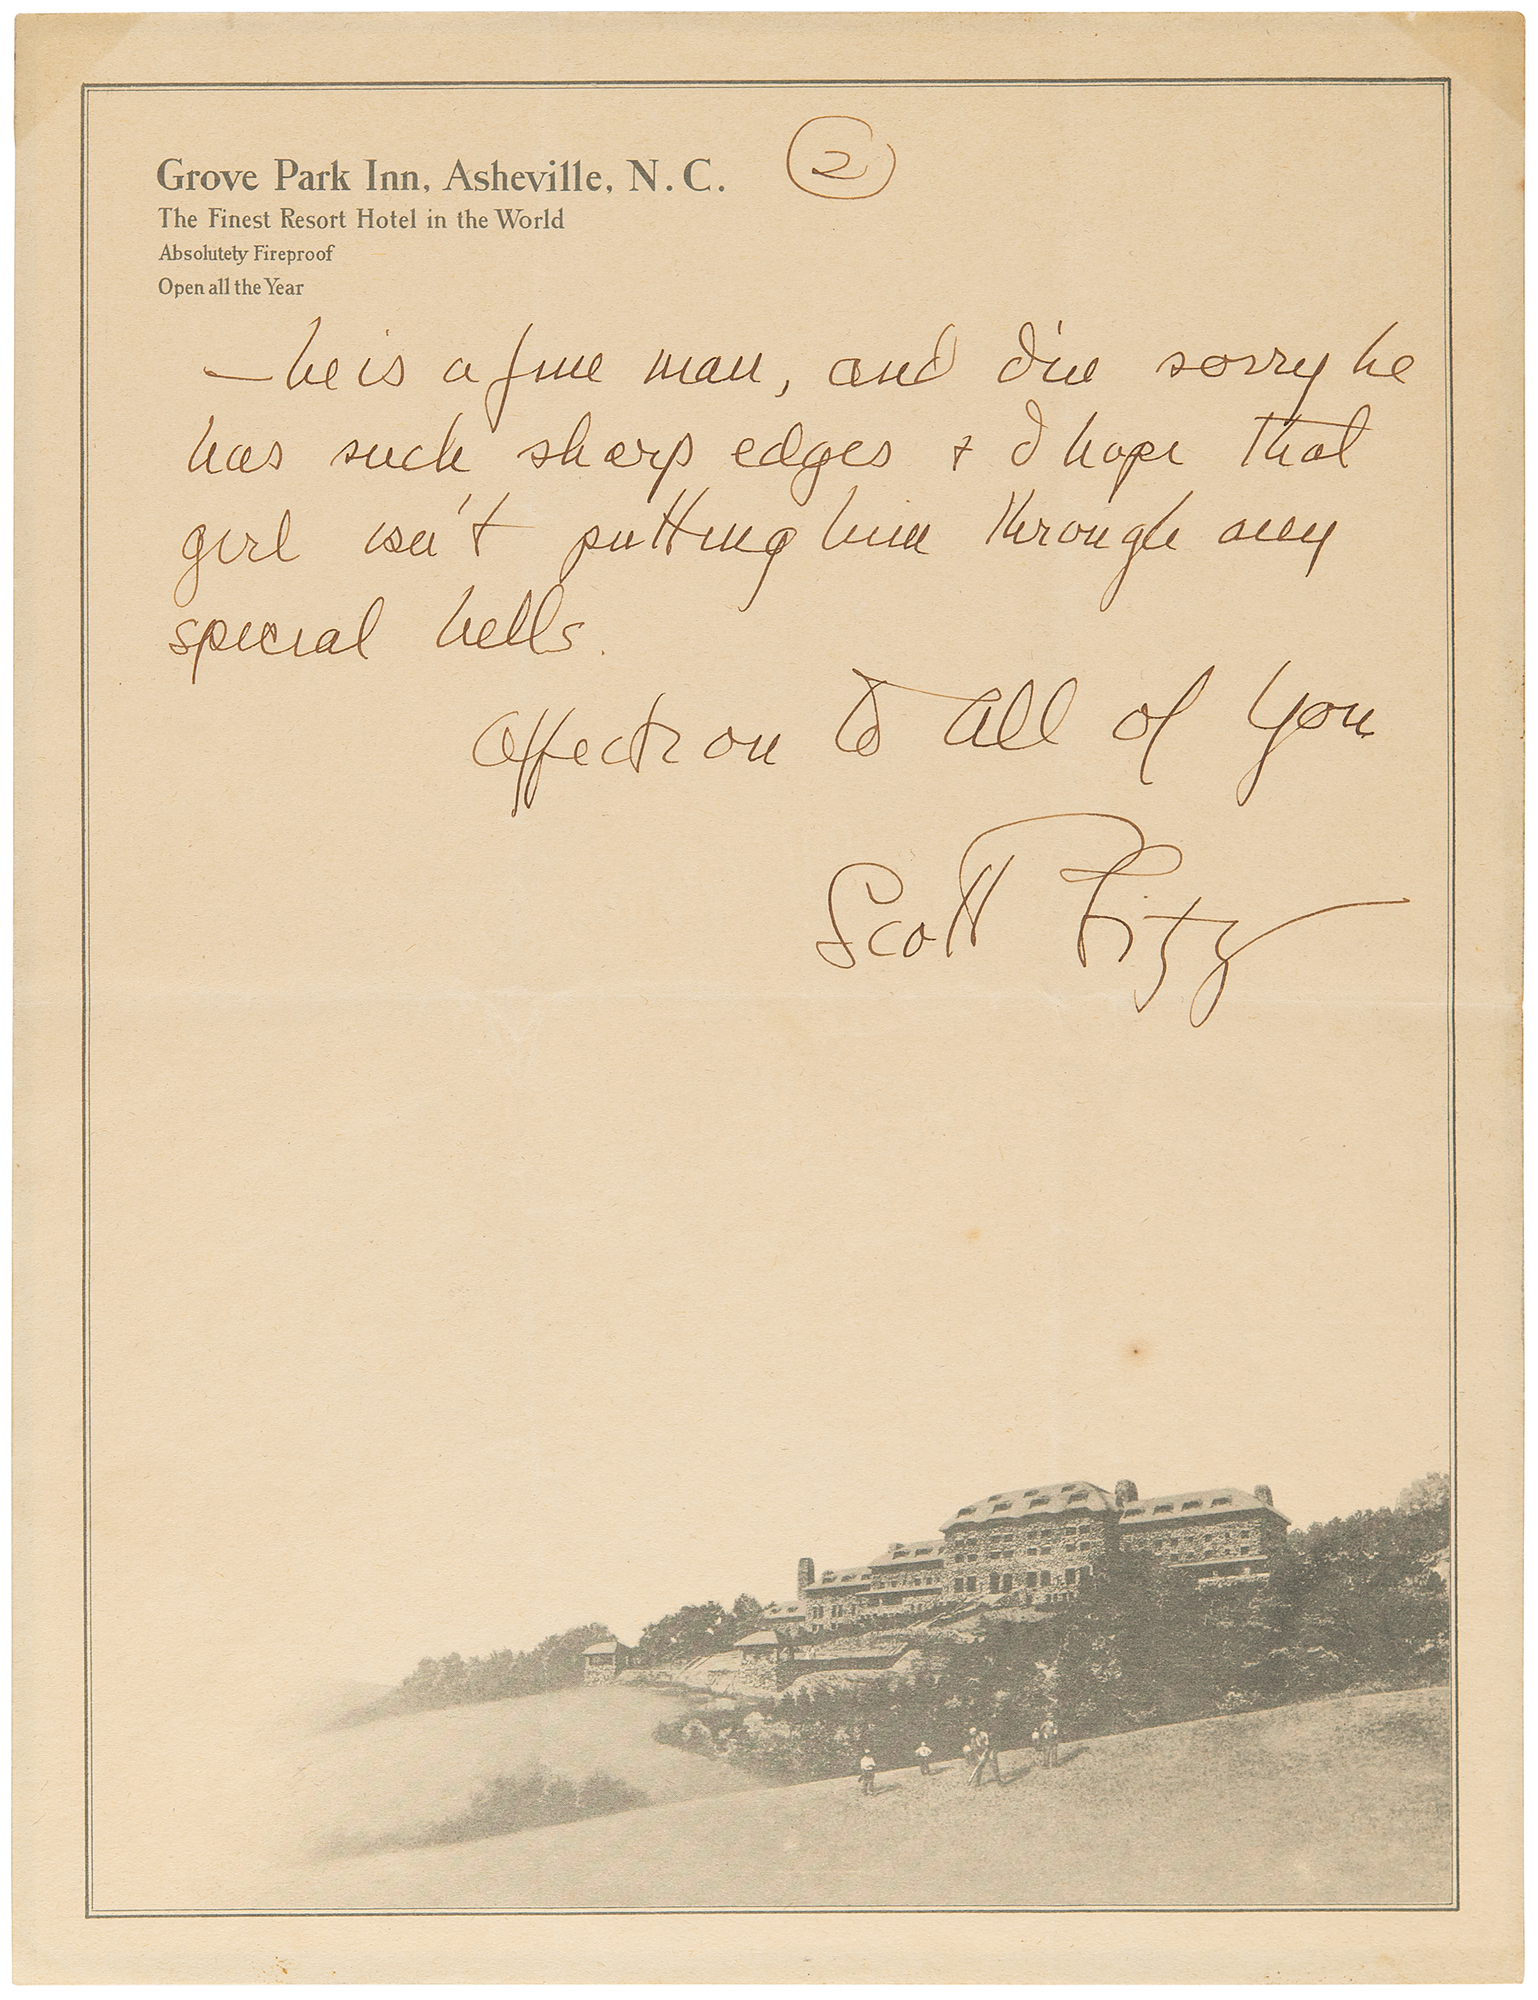 Grove Park Inn, Asheville, N.C.
2
The Finest Resort Hotel in the World
Absolutely Fireproof
Open all the Year
— he is a fine man, and I'm sorry he
has such sharp edges + I hope that
girl isn't putting him through any
special hells.
Affection to all of you
Scott Fitz